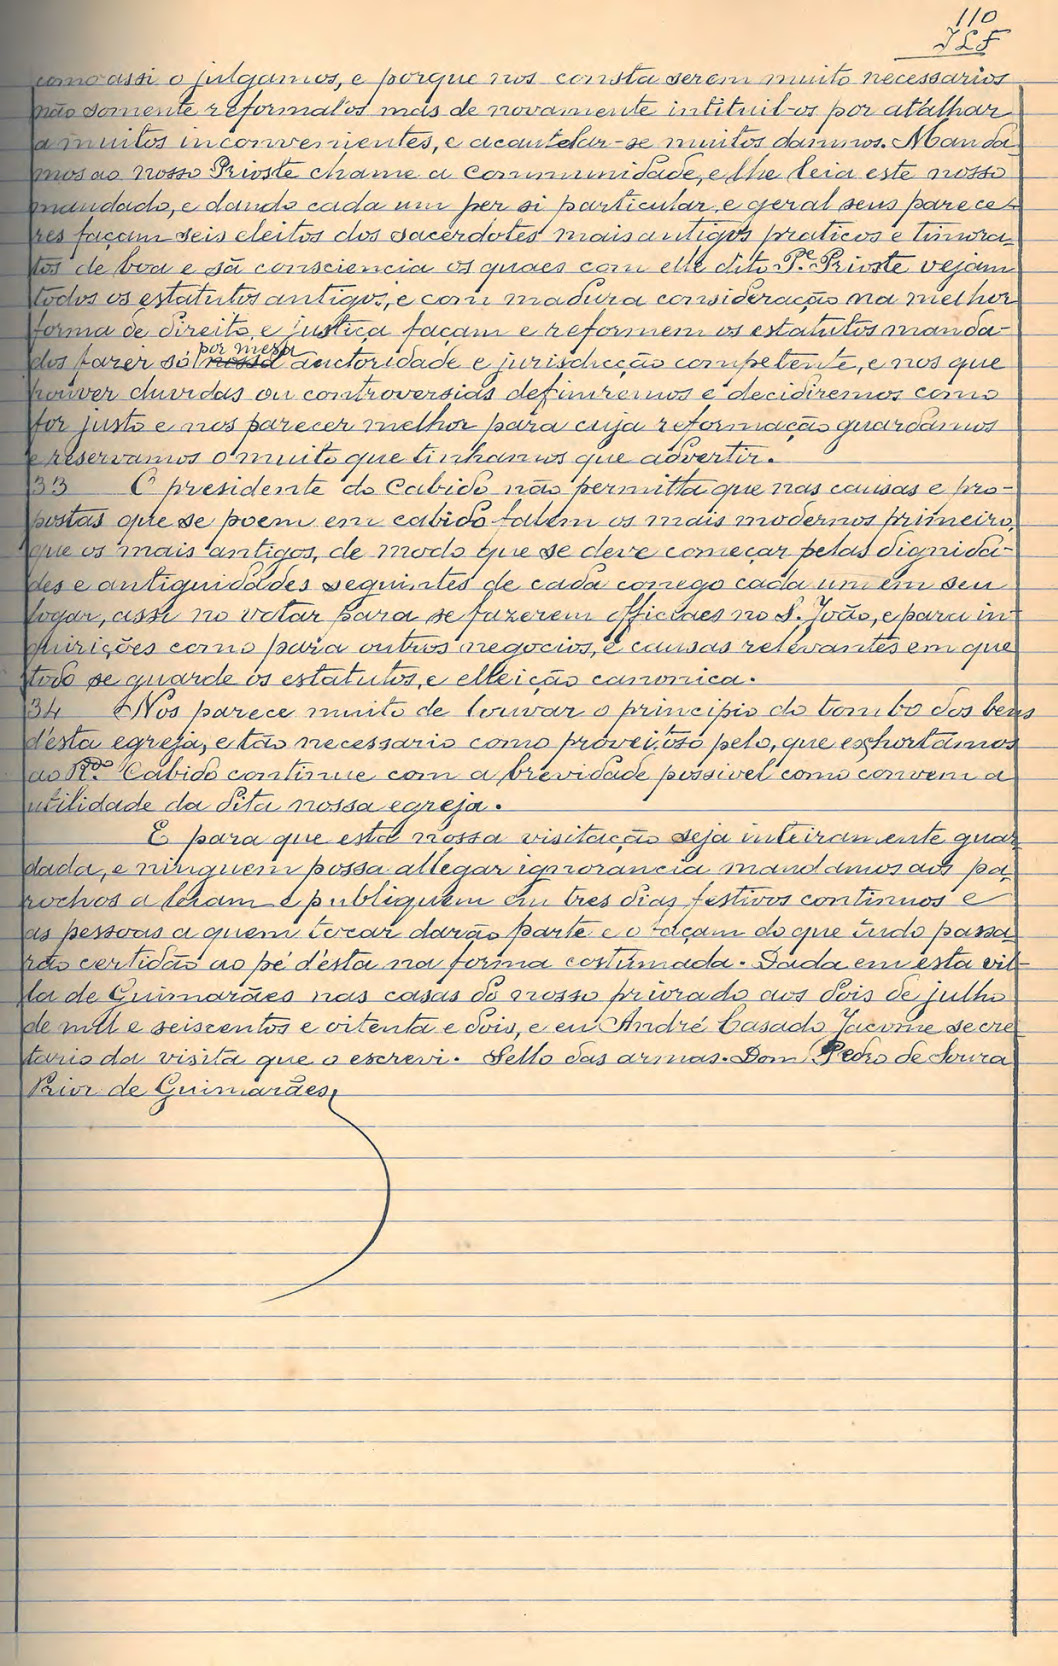 110
JLF
como assi o julgamos, e porque nos consta serem muito necessarios
não somente reformal'os mas de novamente intituil-os por atalhar
a muitos inconvenientes, e acautelar-se muitos damnos. Manda-
mos ao nosso Prioste chame a communidade, e lhe leia este nosso
mandado, e dando cada um per si particular, e geral seus parece-
res façam seis eleitos dos sacerdotes mais antigos praticos e timora-
tos de boa e sã consciencia os quaes com elle dito Pe. Prioste vejam
todos os estatutos antigos, e com madura consideração na melhor
forma de direito e justiça façam e reformem os estatutos manda-
dos fazer só por mera nossa auctoridade e jurisdicção competente, e nos que
houver duvidas ou controversias definiremos e decidiremos como
for justo e nos parecer melhor para cuja reformação guardamos
e reservamos o muito que tinhamos que advertir.
33 O presidente do Cabido não permitta que nas causas e pro-
postas que se poem em cabido falem os mais modernos primeiro,
que os mais antigos, de modo que se deve começar pelas dignida-
des e antiguidades seguintes de cada conego cada um em seu
logar, assi no votar para se fazerem officiaes no S. João, e para in-
quirições como para outros negocios, e causas relevantes em que
todo se guarde os estatutos, e elleição canonica.
34 Nos parece muito de louvar o principio do tombo dos bens
d'esta egreja, e tão necessario como proveitoso pelo, que exhortamos
ao Rdo. Cabido continue com a brevidade possivel como convem a
utilidade da dita nossa egreja.
E para que esta nossa visitação seja inteiramente guar-
dada, e ninguem possa allegar ignorancia mandamos aos pa-
rochos a leiam e publiquem em tres dias festivos continuos e
as pessoas a quem tocar darão parte e o façam do que tudo passa-
rão certidão ao pé d'esta na forma costumada. Dada em esta vil-
la de Guimarães nas casas do nosso priorado aos dois de julho
de mil e seiscentos e oitenta e dois, e eu André Casado Jacome secre
tario da visita que o escrevi. Sello das armas. Dom Pedro de Sousa
Prior de Guimarães,